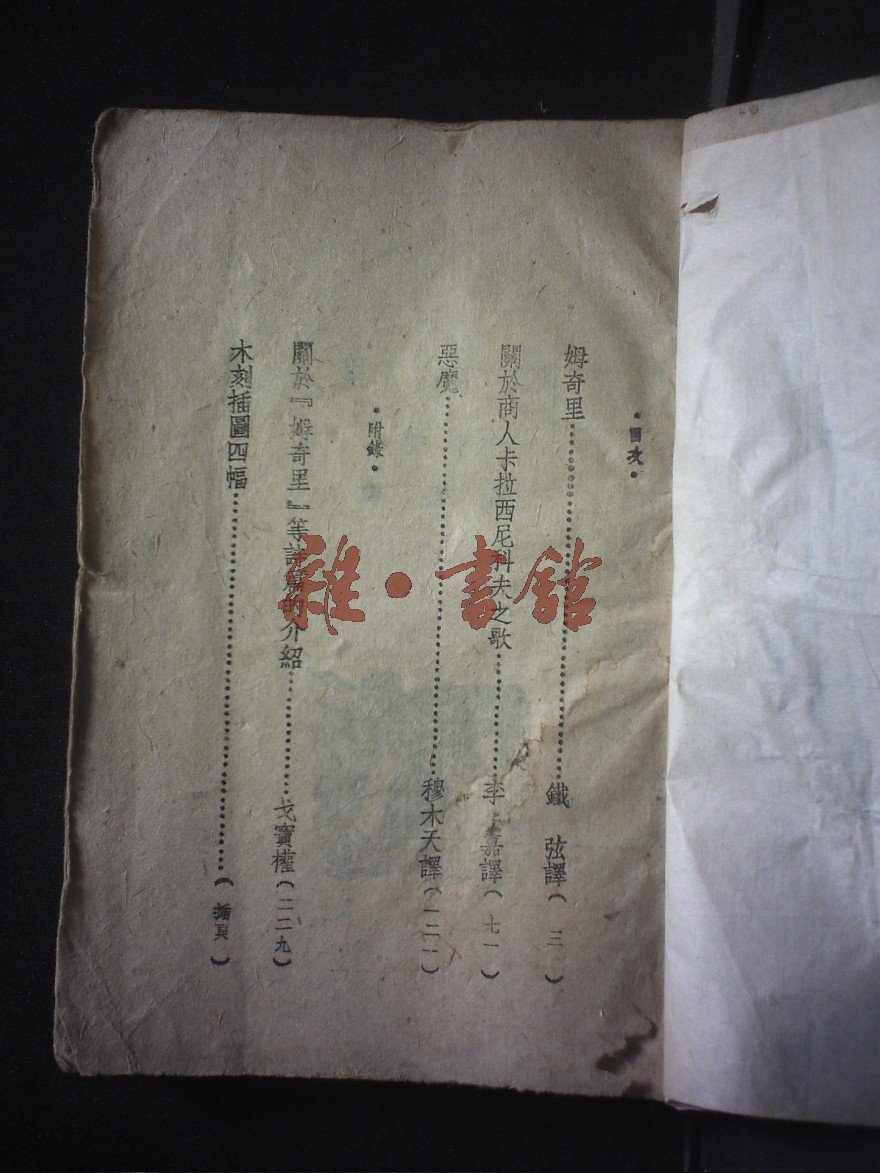 •目次•
姆奇里……鐵 弦譯（三）
關於商人卡拉西尼科夫之歌……李 嘉譯（七一）
惡魔……穆木天譯（一二一）
•附錄•
關於『姆奇里』等詩篇的介紹……戈寶權（二二九）
木刻插圖四幅……（插頁）
雜·書館